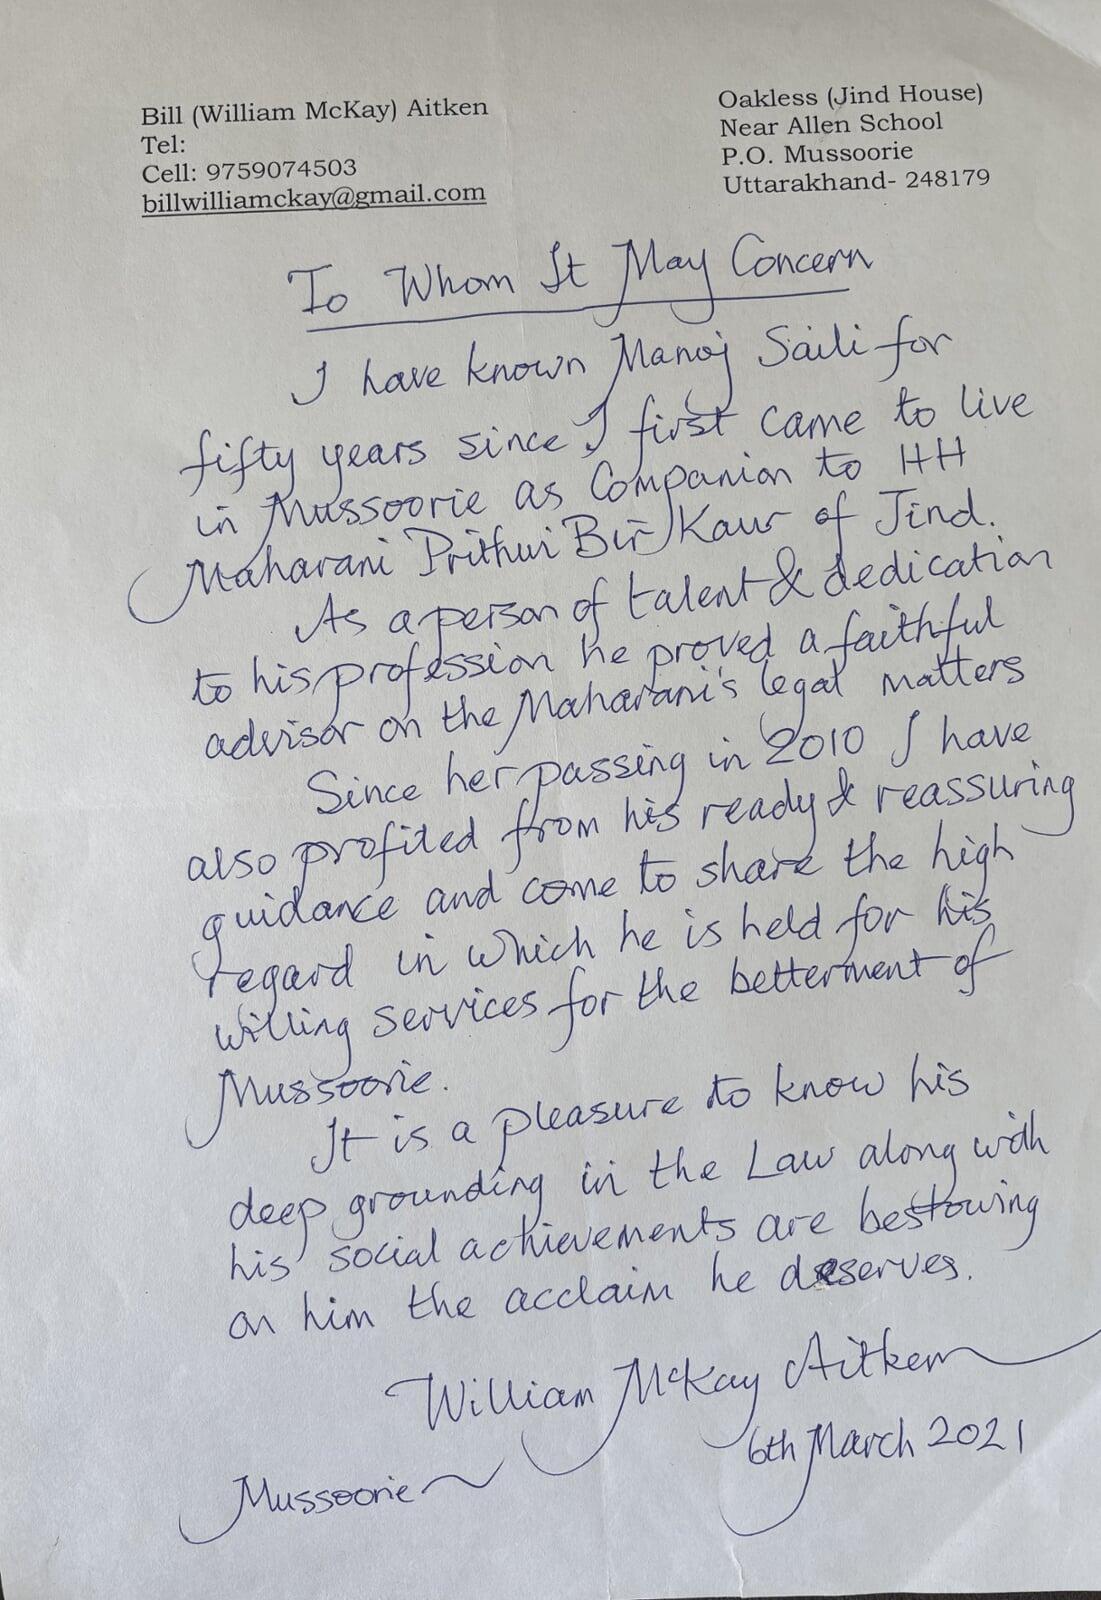 Bill (William McKay) Aitken
Tel:
Cell: 9759074503
billwilliamckay@gmail.com
Oakless (Jind House)
Near Allen School
P.O. Mussoorie
Uttarakhand- 248179
To Whom It May Concern
I have known Manoj Saili for
fifty years since I first came to live
in Mussoorie as Companion to HH
Maharani Prithvi Bir Kaur of Jind.
As a person of talent & dedication
to his profession he proved a faithful
advisor on the Maharani's legal matters
Since her passing in 2010 I have
also profited from his ready & reassuring
guidance and come to share the high
regard in which he is held for his
willing services for the betterment of
Mussoorie.
It is a pleasure to know his
deep grounding in the Law along with
his social achievements are bestowing
on him the acclaim he deserves.
William McKay Aitken
6th March 2021
Mussoorie